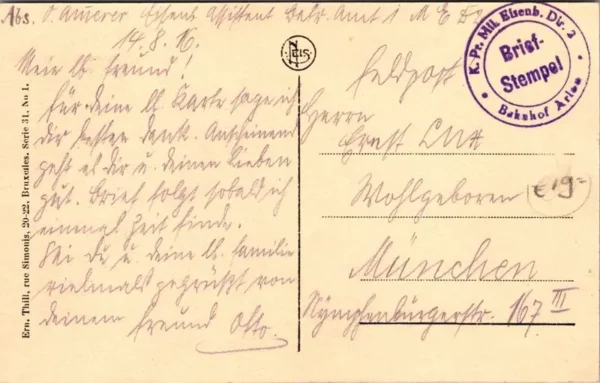 Abs. O. Auerer Eisenb. Assistent Betr. Amt 1 M E D 2
14.8.16.
Mein lb. Freund!
Für deine lb. Karte sage ich
dir besten Dank. Anscheinend
geht es dir u. deinen Lieben
gut. Brief folgt sobald ich
einmal Zeit finde.
Sei du u. deine lb. Familie
vielmals gegrüßt von
deinem Freund Otto.
Feldpost
Herrn
Ernst
Wohlgeboren
München
Nymphenburgerstr. 167 III
K. Pr. Mil. Eisenb. Dir. 2
Brief-
Stempel
Bahnhof Arlon
€ 19-
Ern. Thill, rue Simonis, 20-22, Bruxelles. Serie 31, No 1.